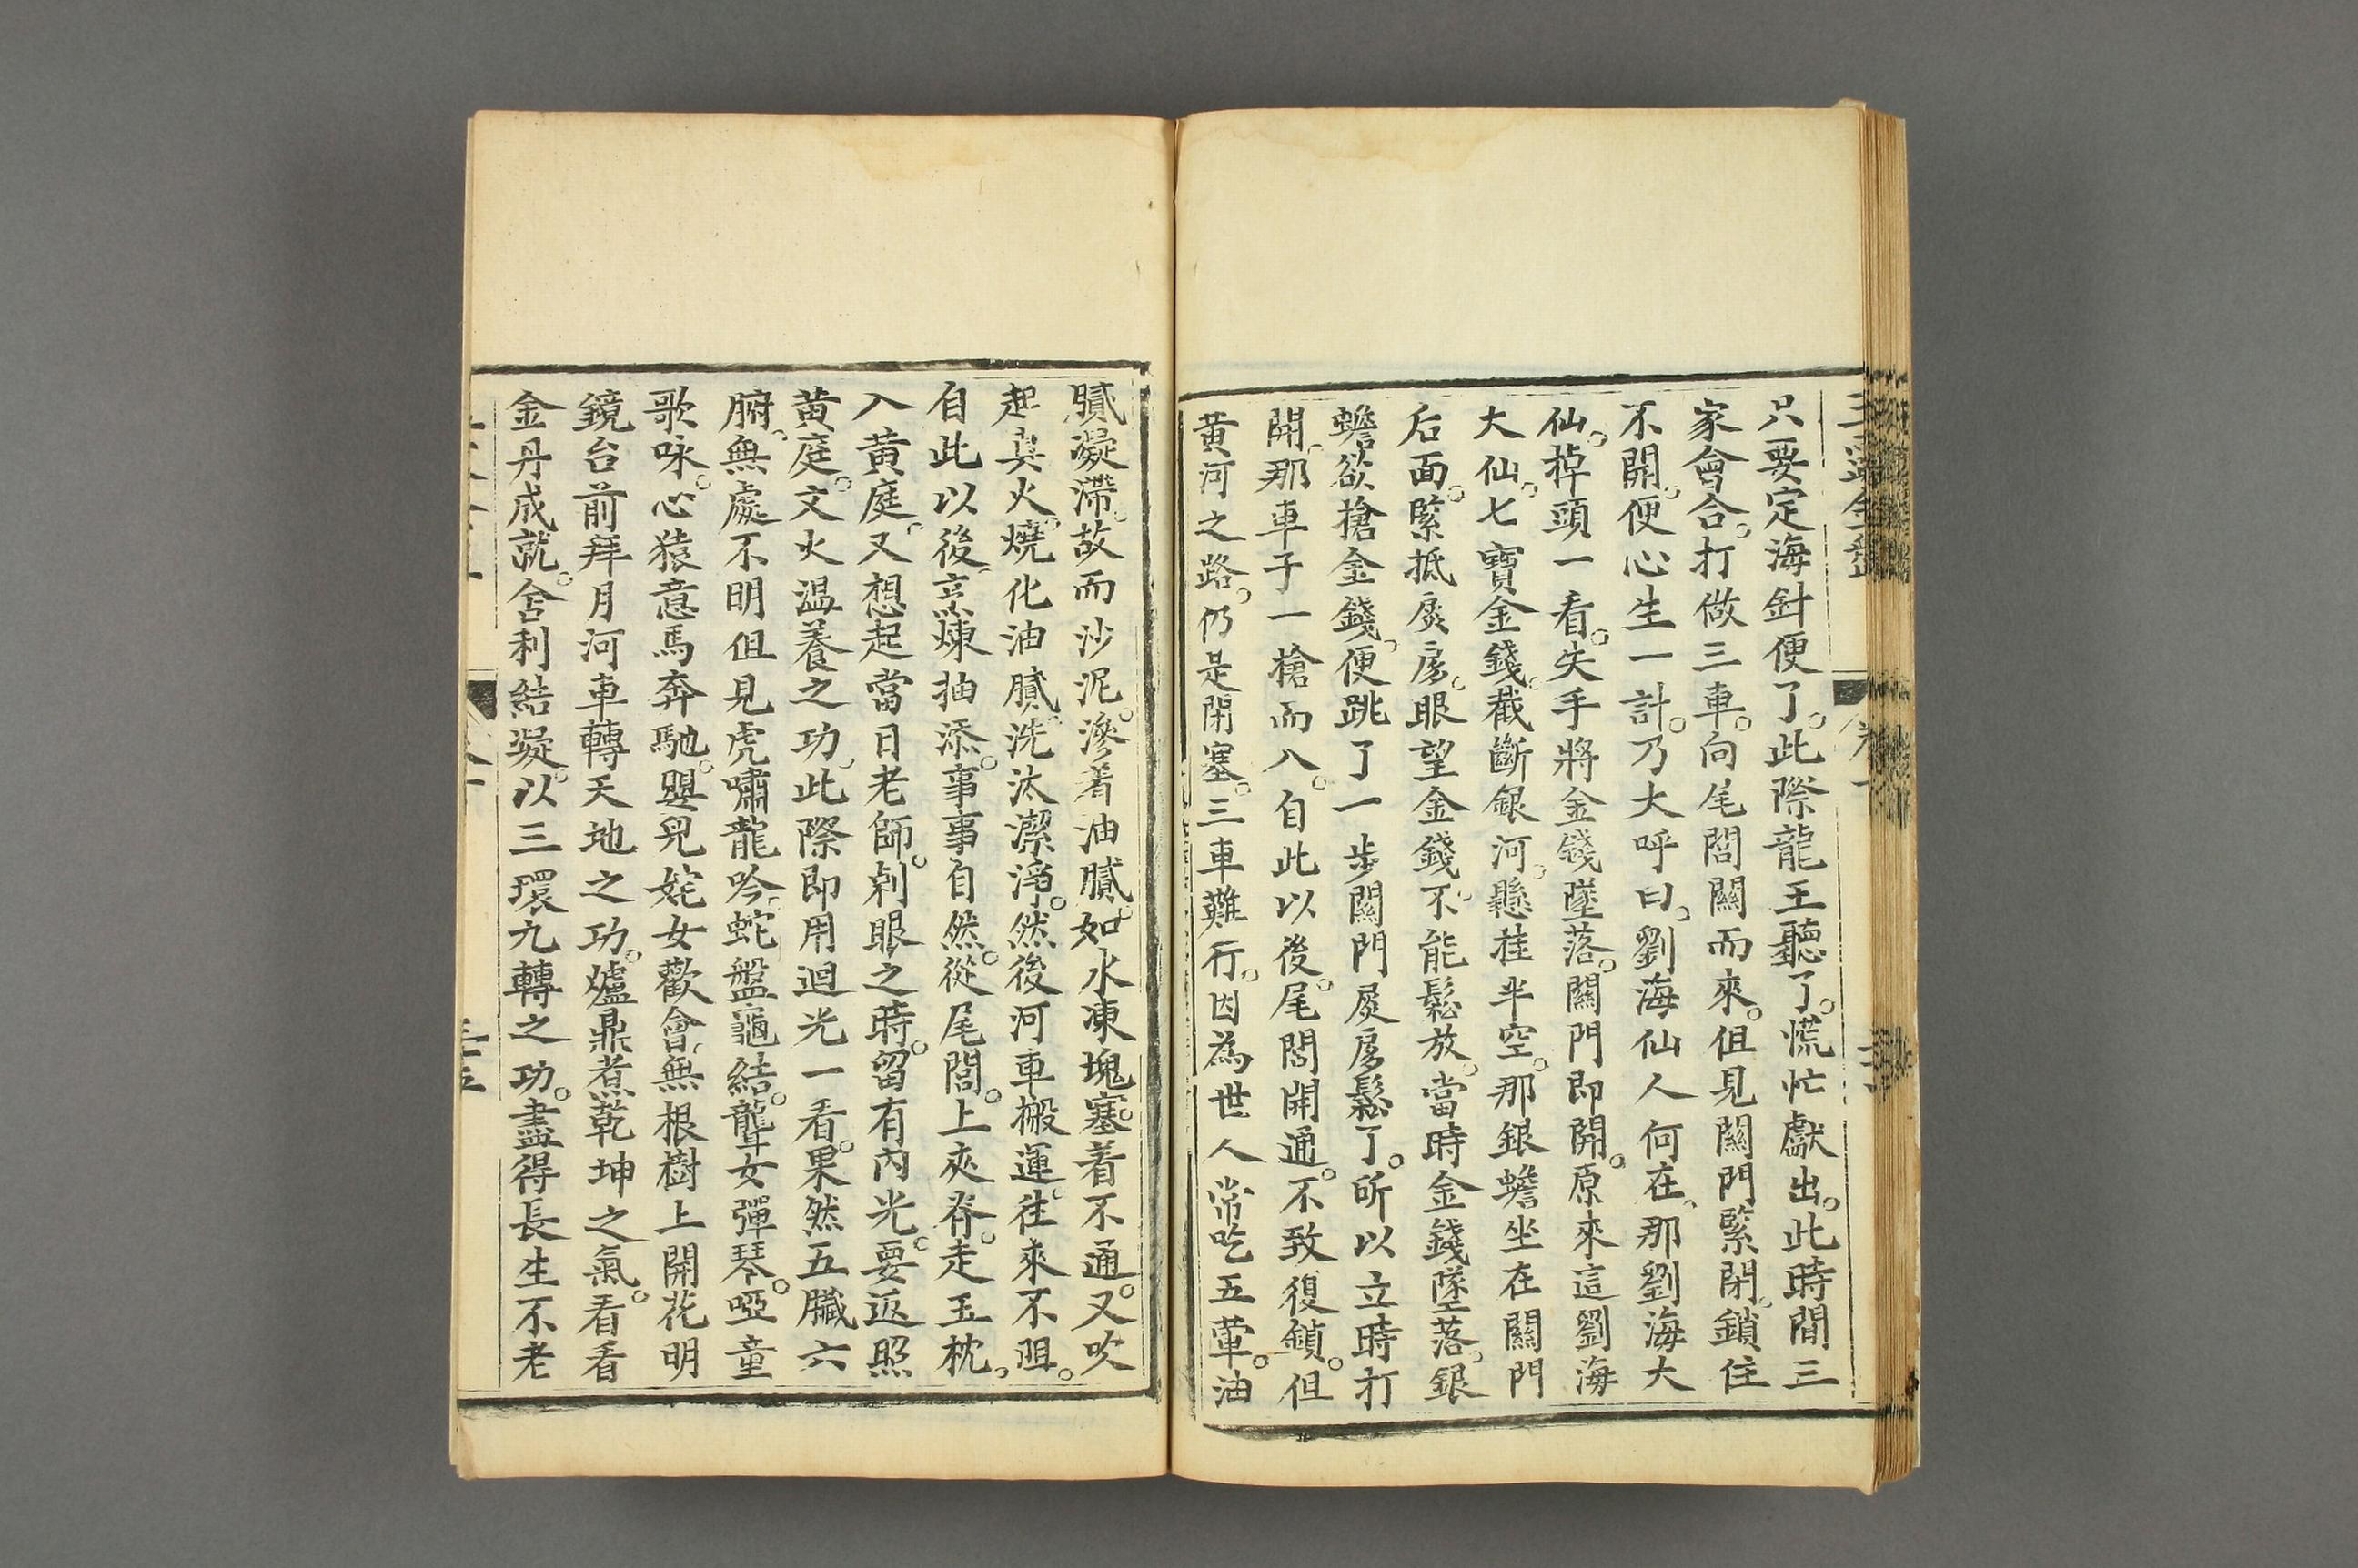 只要定海針便了。此際龍王聽了。慌忙獻出。此時間三
家會合。打做三車。向尾閭關而來。但見關門緊閉。鎖住
不開。便心生一計。乃大呼曰。劉海仙人何在。那劉海大
仙。掉頭一看。失手將金錢墜落。關門即開。原來這劉海
大仙。七寶金錢。截斷銀河。懸挂半空。那銀蟾坐在關門
后面。緊抵房。眼望金錢。不能鬆放。當時金錢墜落。銀
蟾欲搶金錢。便跳了一步關門房鬆了。所以立時打
開。那車子一搶而入。自此以後。尾閭開通。不致復鎖。但
黃河之路。仍是閉塞。三車難行。因為世人常吃五葷。油
膩凝滯。故而沙泥。滲着油膩。如水凍塊。塞着不通。又吹
起真火。燒化油膩。洗汰潔淨。然後河車搬運。往來不阻。
自此以後。烹煉抽添。事事自然。從尾閭。上夾脊。走玉枕。
入黃庭。又想起當日老師。剁眼之時。留有內光。要返照
黃庭。文火温養之功。此際即用迴光一看。果然五臟六
腑。無處不明但見虎嘯龍吟。蛇盤龜結。聾女彈琴。啞童
歌咏。心猿意馬奔馳。嬰兒姹女歡會。無根樹上開花明
鏡台前拜月河車轉天地之功。爐鼎煮乾坤之氣。看看
金丹成就。舍利結凝。以三環九轉之功。盡得長生不老